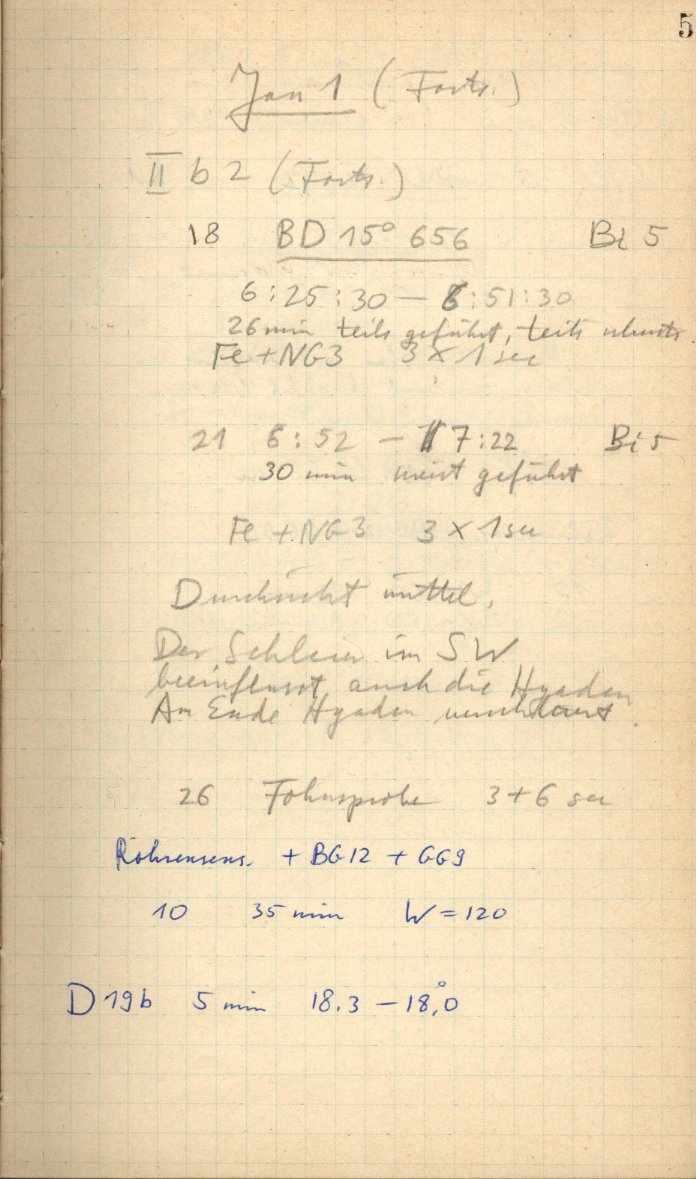 5
Jan 1 (Forts.)
II b 2 (Forts.)
18 BD 15° 656 Bi 5
6:25:30 — 6:51:30
26 min teils geführt, teils
Fe + NG3 3 × 1 sec
21 6:52 — 7:22 Bi 5
30 min meist geführt
Fe + NG3 3 × 1 sec
Durchsicht mittel.
Der Schleier im SW
beeinflusst auch die Hyaden
Am Ende Hyaden verschleiert.
26 3 + 6 sec
Röhrensens. + BG12 + GG9
10 35 min W = 120
D 19b 5 min 18.3 — 18,°0